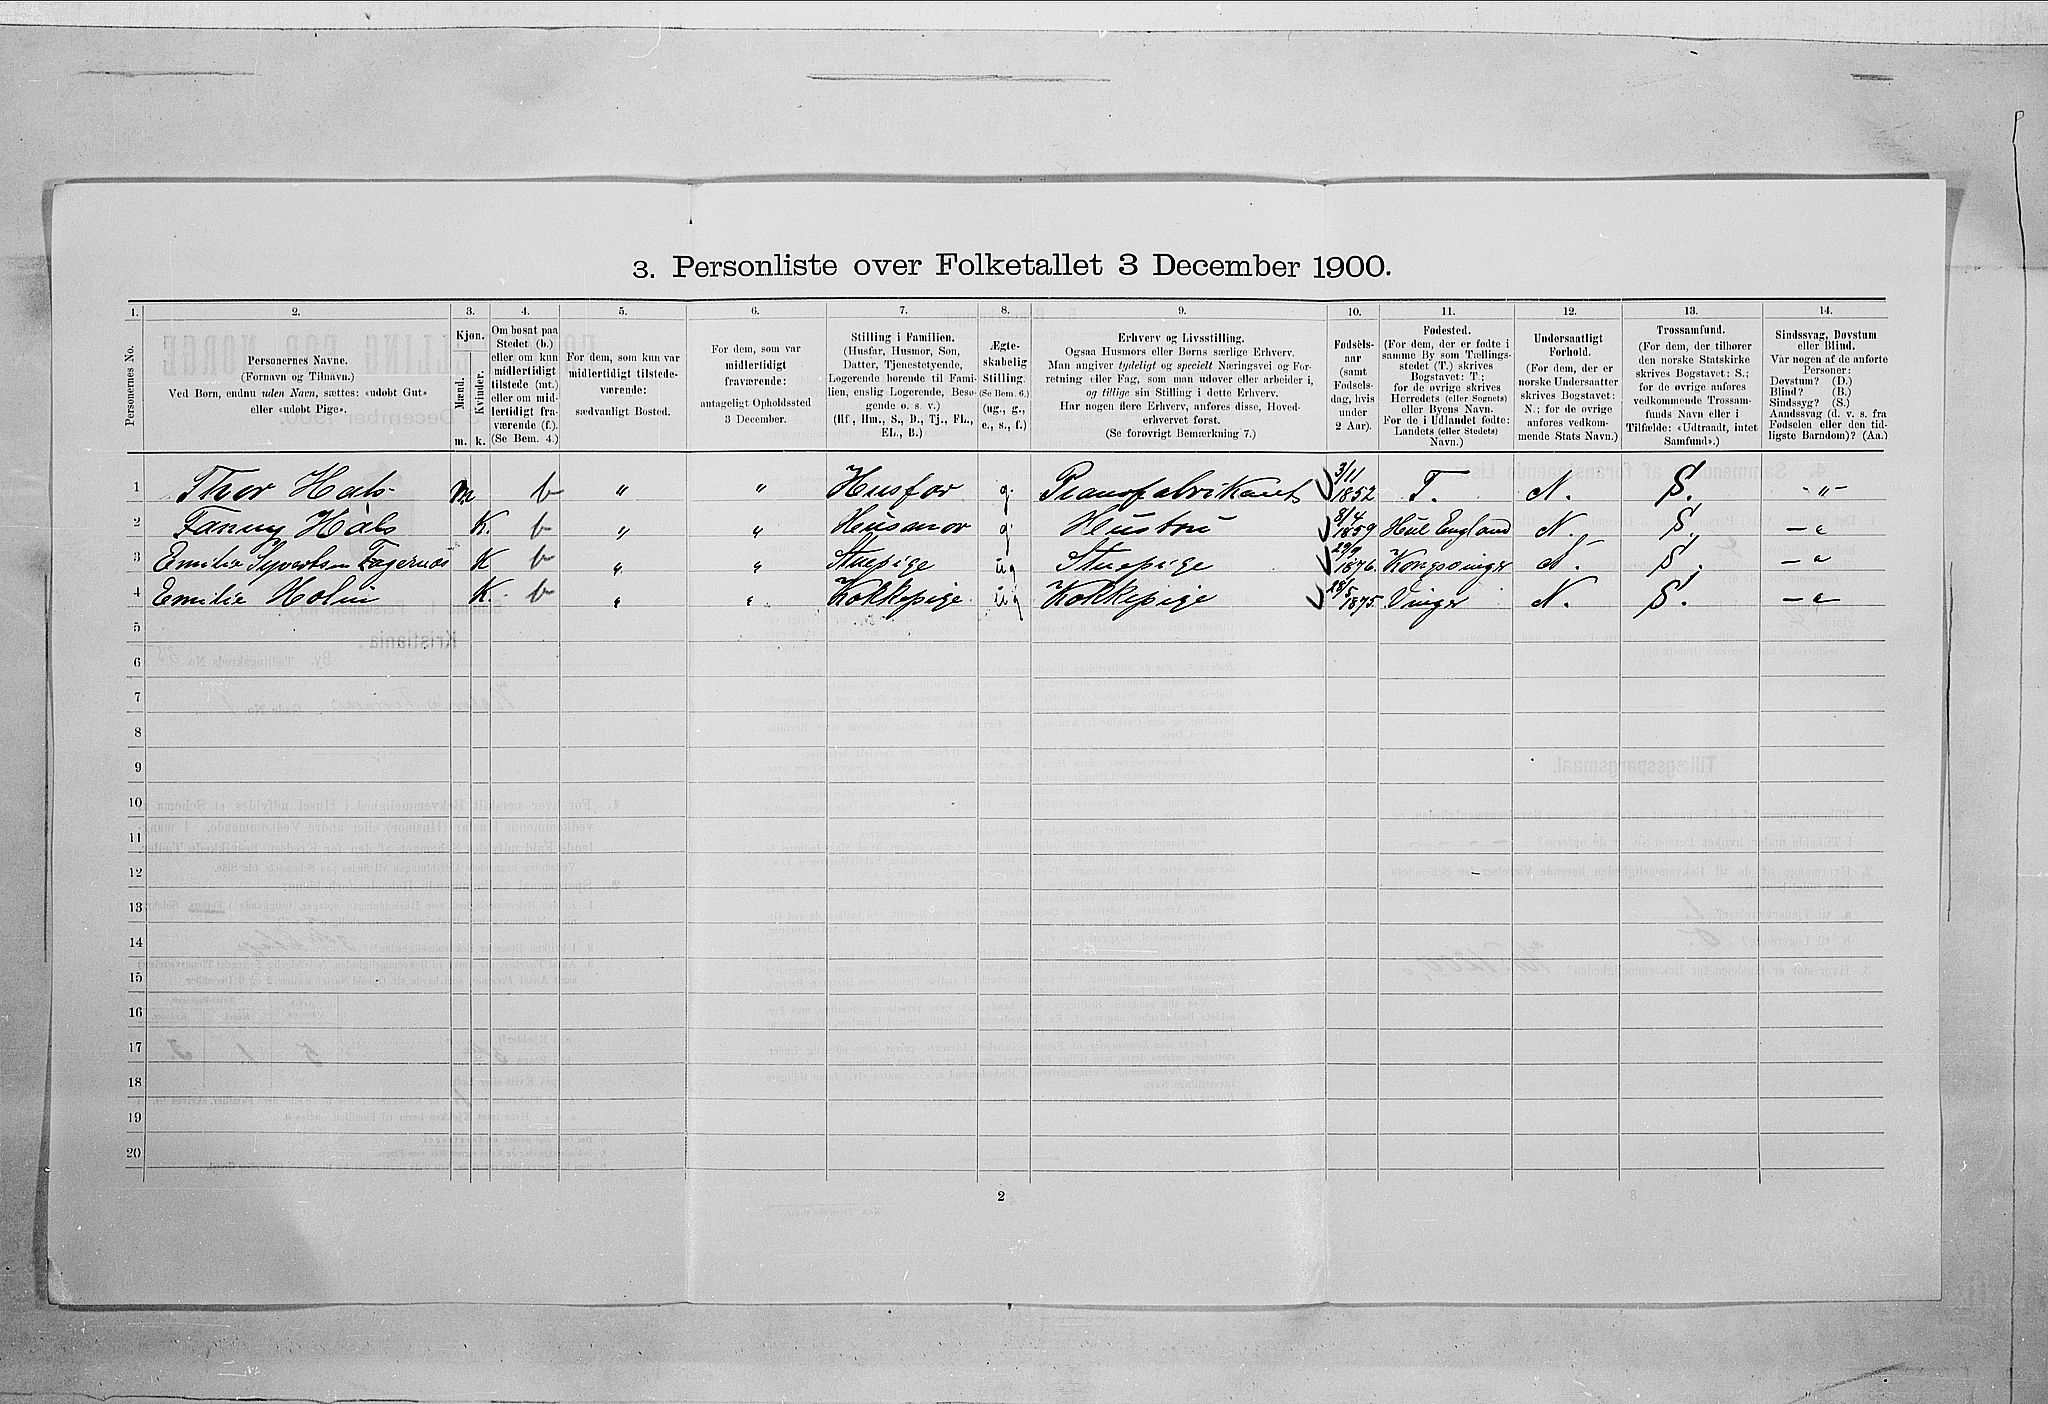 3. Personliste over Folketallet 3 December 1900.
1. 2. 3. 4. 5. 6. 7. 8. 9. 10. 11. 12. 13. 14.
Personernes No.
Personernes Navne.
(Fornavn og Tilnavn.)
Ved Børn, endnu uden Navn, sættes: «udøbt Gut»
eller «udøbt Pige».
Kjøn.
Mænd.
Kvinder.
m. k.
Om bosat paa
Stedet (b.)
eller om kun
midlertidigt
tilstede (mt.)
eller om mid-
lertidigt fra-
værende (f.).
(Se Bem. 4.)
For dem, som kun var
midlertidigt tilstede-
værende:
sædvanligt Bosted.
For dem, som var
midlertidigt
fraværende:
antageligt Opholdssted
3 December.
Stilling i Familien.
(Husfar, Husmor, Søn,
Datter, Tjenestetyende,
Logerende hørende til Fami-
lien, enslig Logerende, Besø-
gende o. s. v.)
(Hf, Hm., S., D., Tj., FL.,
EL., B.)
Ægte-
skabelig
Stilling.
(Se Bem. 6.)
(ug., g.,
e., s., f.)
Erhverv og Livsstilling.
Ogsaa Husmors eller Børns særlige Erhverv.
Man angiver tydeligt og specielt Næringsvei og For-
retning eller Fag, som man udøver eller arbeider i,
og tillige sin Stilling i dette Erhverv.
Har nogen flere Erhverv, anføres disse, Hoved-
erhvervet først.
(Se forøvrigt Bemærkning 7.)
Fødsels-
aar
(samt
Fødsels-
dag, hvis
under
2 Aar).
Fødested.
(For dem, der er fødte i
samme By som Tællings-
stedet (T.) skrives
Bogstavet: T;
for de øvrige skrives
Herredets (eller Sognets)
eller Byens Navn.
For de i Udlandet fødte:
Landets (eller Stedets)
Navn.)
Undersaatligt
Forhold.
(For dem, der er
norske Undersaatter
skrives Bogstavet:
N.; for de øvrige
anføres vedkom-
mende Stats Navn.)
Trossamfund.
(For dem, der tilhører
den norske Statskirke
skrives Bogstavet: S.;
for de øvrige anføres
vedkommende Trossam-
funds Navn eller i
Tilfælde: «Udtraadt, intet
Samfund».)
Sindssvag, Døvstum
eller Blind.
Var nogen af de anførte
Personer:
Døvstum? (D.)
Blind? (B.)
Sindssyg? (S.)
Aandssvag (d. v. s. fra
Fødselen eller den tid-
ligste Barndom)? (Aa.)
1 Thor Hals m b " " Husfar g. Pianofabrikant 3/11 1852 T. N. S. -"-
2 Fanny Hals K. b " " Husmor g. Hustru 8/4 1859 Hul England N. S. - "
3 Emilie Syvertsen Fagernæs K b " " Stuepige ug Stuepige 29/9 1876. Kongsvinger N. S. - "
4 Emilie Holm K. b " " Kokkepige ug Kokkepige 28/5 1875. Vinger N. S. - "
5
6
7
8
9
10
11
12
13
14
15
16
17
18
19
20
2